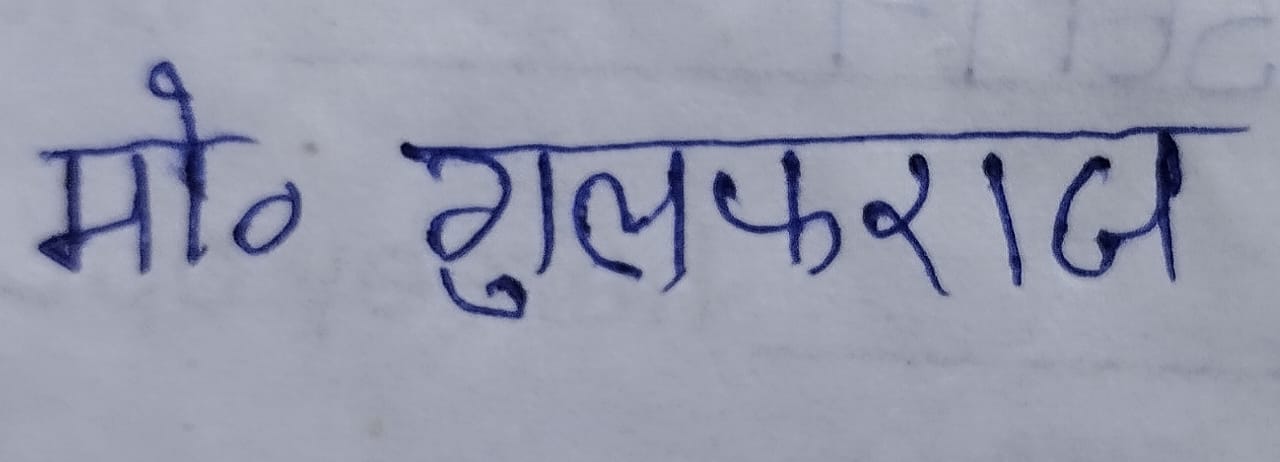 मो० गुलफराज